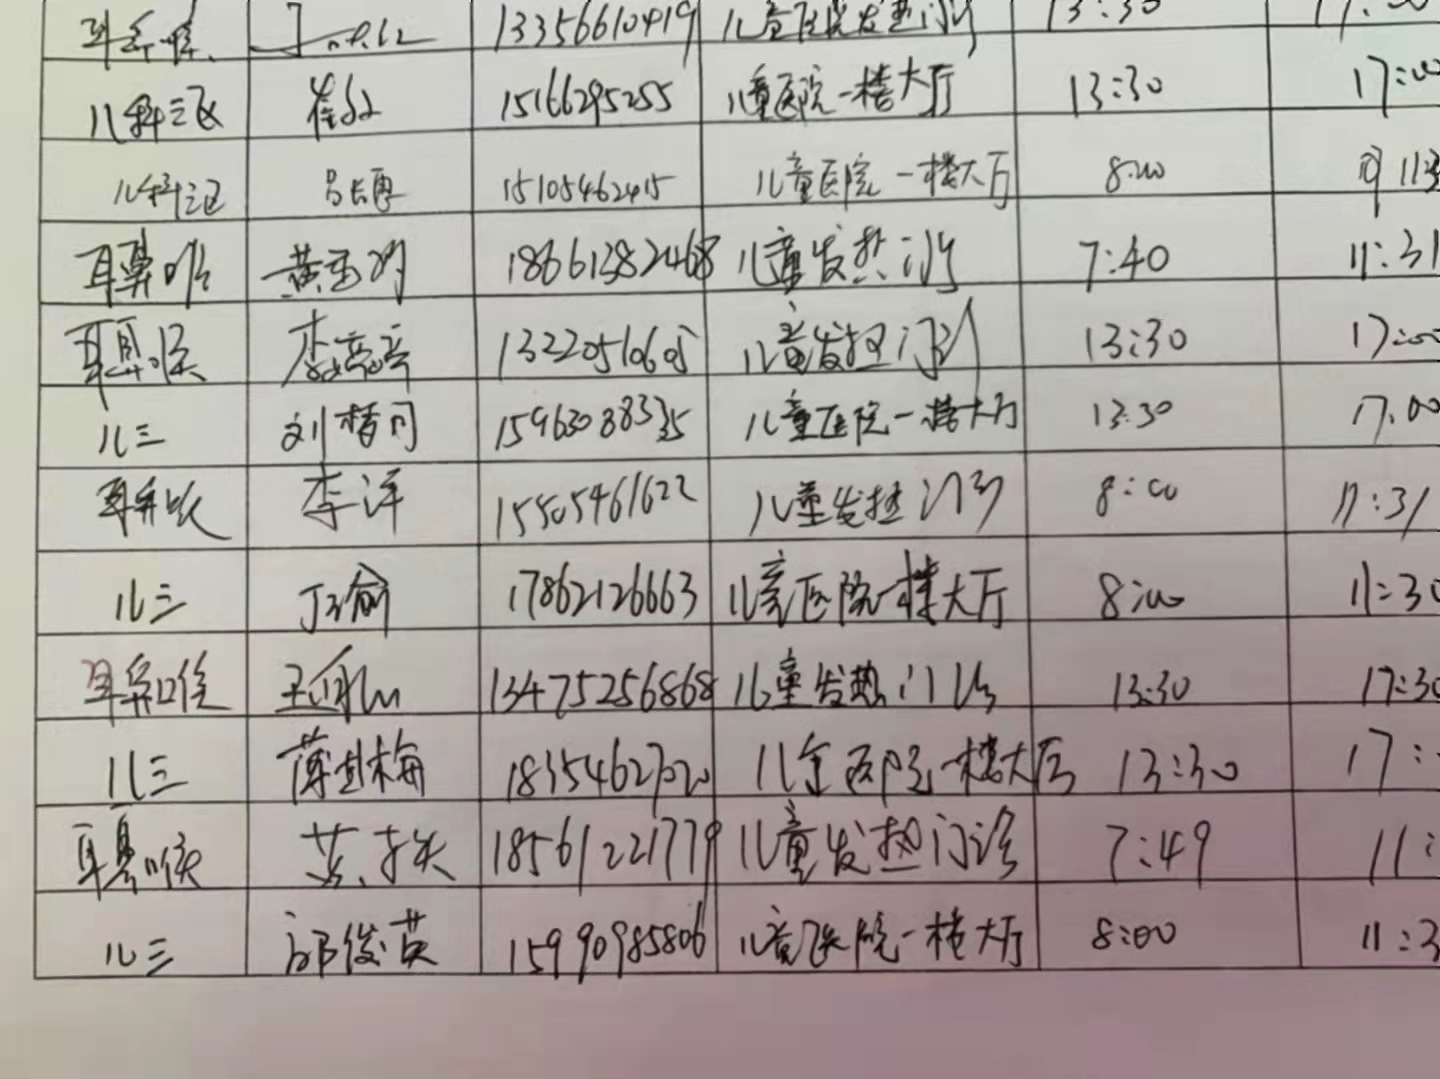 耳鼻喉 13356610419 儿童医院发热门诊 13:30
儿科三区 崔 15166295255 儿童医院一楼大厅 13:30 17:00
儿科三区 15105462415 儿童医院一楼大厅 8:00 11:3
耳鼻喉 黄 18661382468 儿童发热门诊 7:40 11:31
耳鼻喉 李 13220510605 儿童发热门诊 13:30 17:00
儿三 刘 15963088335 儿童医院一楼大厅 13:30 17:00
耳鼻喉 李洋 15505461622 儿童发热门诊 8:00 11:31
儿三 丁瑜 17862126663 儿童医院一楼大厅 8:00 11:30
耳鼻口侯 王 13475256868 儿童发热门诊 13:30 17:30
儿三 薄 梅 18354627020 儿童医院一楼大厅 13:30 17:
耳鼻喉 18561221779 儿童发热门诊 7:49 11:
儿三 郭俊英 15990985806 儿童医院一楼大厅 8:00 11:3